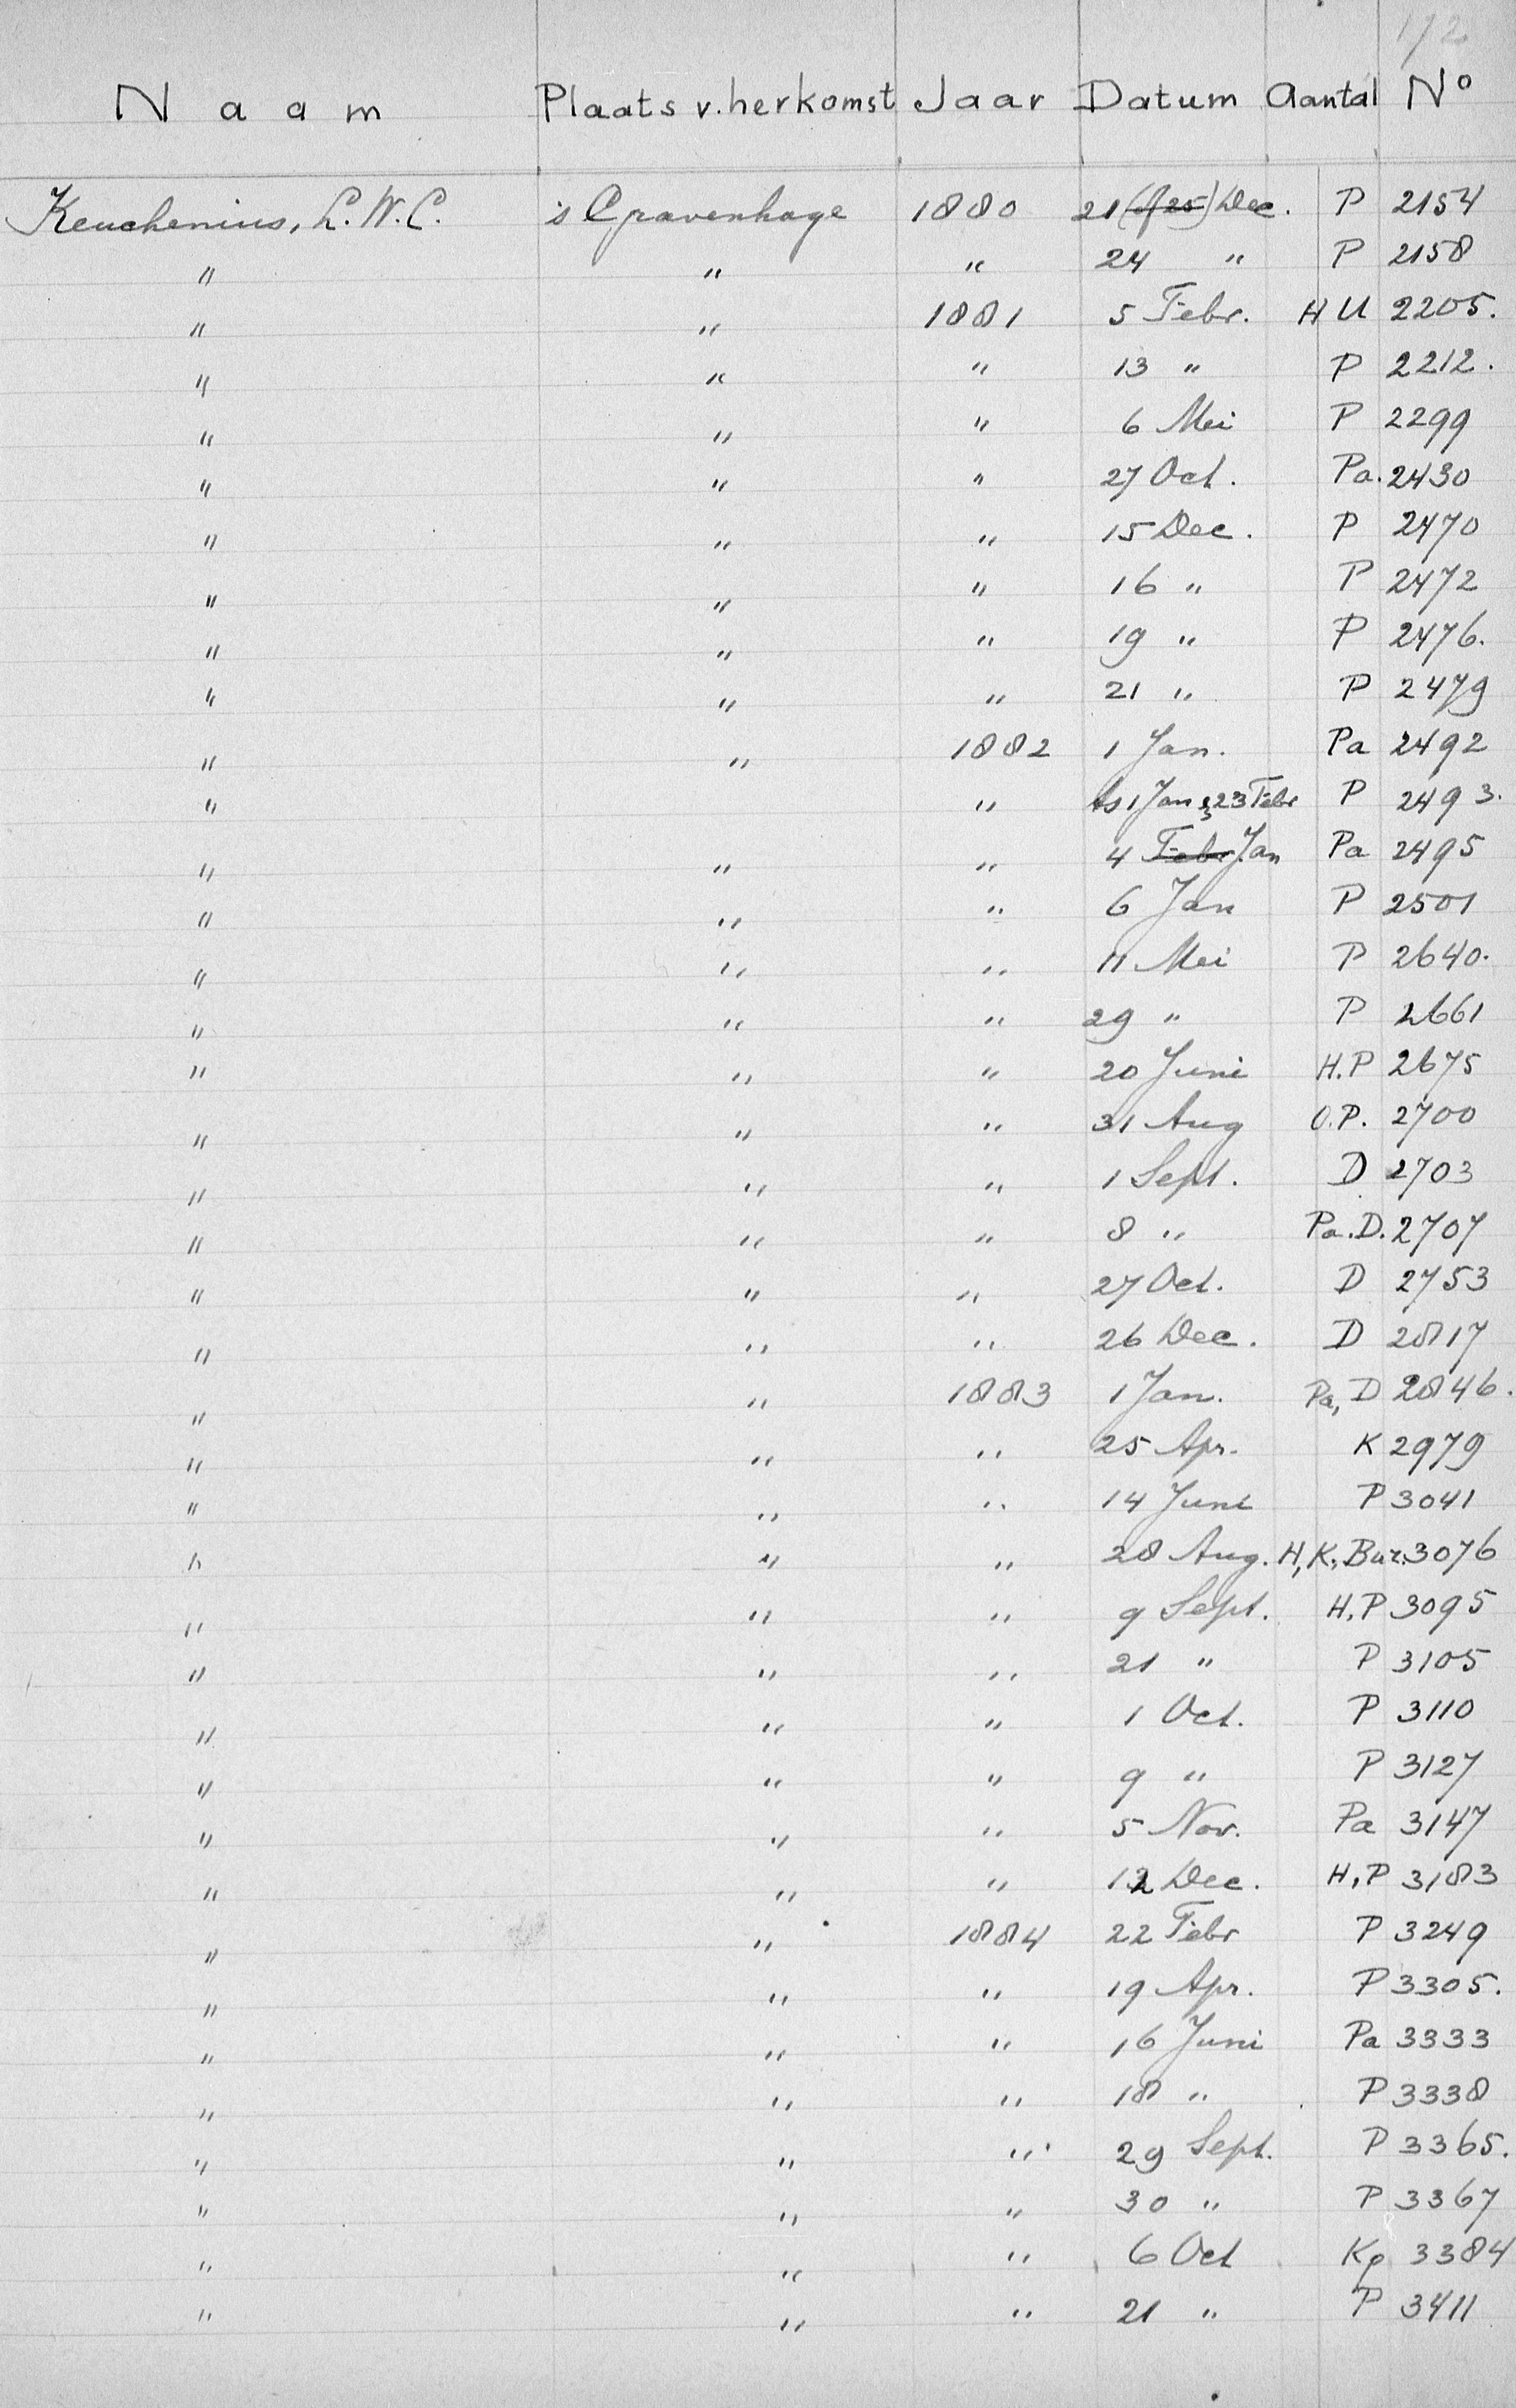 172
Naam Plaats v. herkomst Jaar Datum Aantal No
Keuchenius, L.W.C. 's Gravenhage 1880 21 (of 25) Dec. P 2154
" " " 24 " P 2158
" " 1881 5 Febr. H U 2205.
" " " 13 " P 2212.
" " " 6 Mei P 2299
" " " 27 Oct. Pa. 2430
" " " 15 Dec. P 2470
" " " 16 " P 2472
" " " 19 " P 2476.
" " " 21 " P 2479
" " 1882 1 Jan. Pa 2492
" " " ts 1 Jan & 23 Febr P 2493.
" " " 4 Febr. Jan Pa 2495
" " " 6 Jan P 2501
" " " 11 Mei P 2640.
" " " 29 " P 2661
" " " 20 Juni H.P 2675
" " " 31 Aug O.P. 2700
" " " 1 Sept. D 2703
" " " 8 " Pa. D. 2707
" " " 27 Oct. D 2753
" " " 26 Dec. D 2817
" " 1883 1 Jan. Pa, D 2846.
" " " 25 Apr. K 2979
" " " 14 Juni P 3041
" " " 28 Aug. H, K, Buz. 3076
" " " 9 Sept. H, P 3095
" " " 21 " P 3105
" " " 1 Oct. P 3110
" " " 9 " P 3127
" " " 5 Nov. Pa 3147
" " " 12 Dec. H, P 3183
" " 1884 22 Febr P 3249
" " " 19 Apr. P 3305.
" " " 16 Juni Pa 3333
" " " 18 " P 3338
" " " 29 Sept. P 3365.
" " " 30 " P 3367
" " " 6 Oct Kp 3384
" " " 21 " P 3411